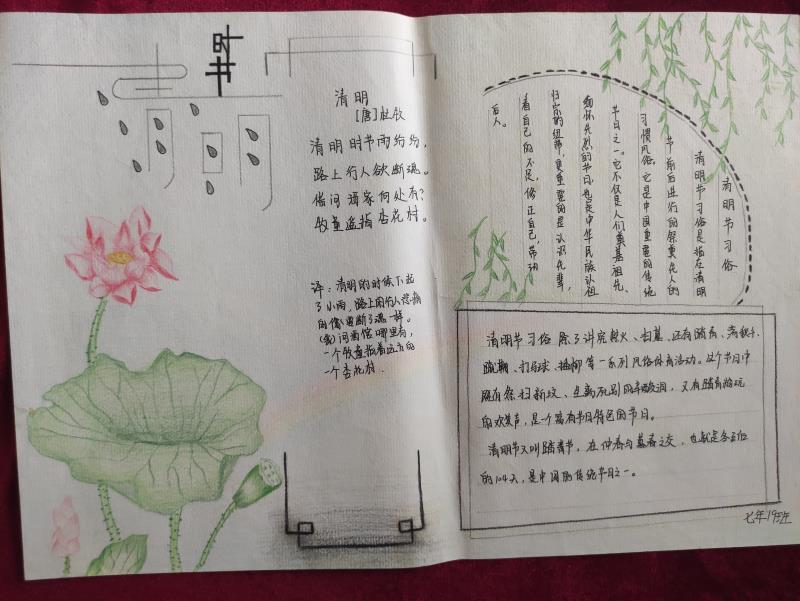 时节
雨雨
清明
[唐]杜牧
清明时节雨纷纷,
路上行人欲断魂。
借问酒家何处有?
牧童遥指杏花村。
译:清明的时候下起
了小雨,路上的行人悲痛
的像要断了魂一样。
问酒馆哪里有,
一个牧童指着远方的
一个杏花村.
清明节习俗
清明节习俗是指在清明
节前后进行的祭奠先人的
习惯风俗。它是中国重要的传统
节日之一。它不仅是人们奠基祖先、
缅怀先烈的节日,也是中华民族认祖
归宗的纽带,更重要的是认识先辈,
看自己的不足,修正自己,带动
后人。
清明节习俗除了讲究禁火、扫墓,还有踏青、荡秋千、
蹴鞠、打马球、插柳等一系列风俗体育活动。这个节日中
既有祭扫新坟、生离死别的辛酸泪,又有踏青游玩
的欢笑声,是一个富有节日特色的节日。
清明节又叫踏青节,在仲春与暮春之交,也就是冬至后
的104天,是中国的传统节日之一。
七年19班